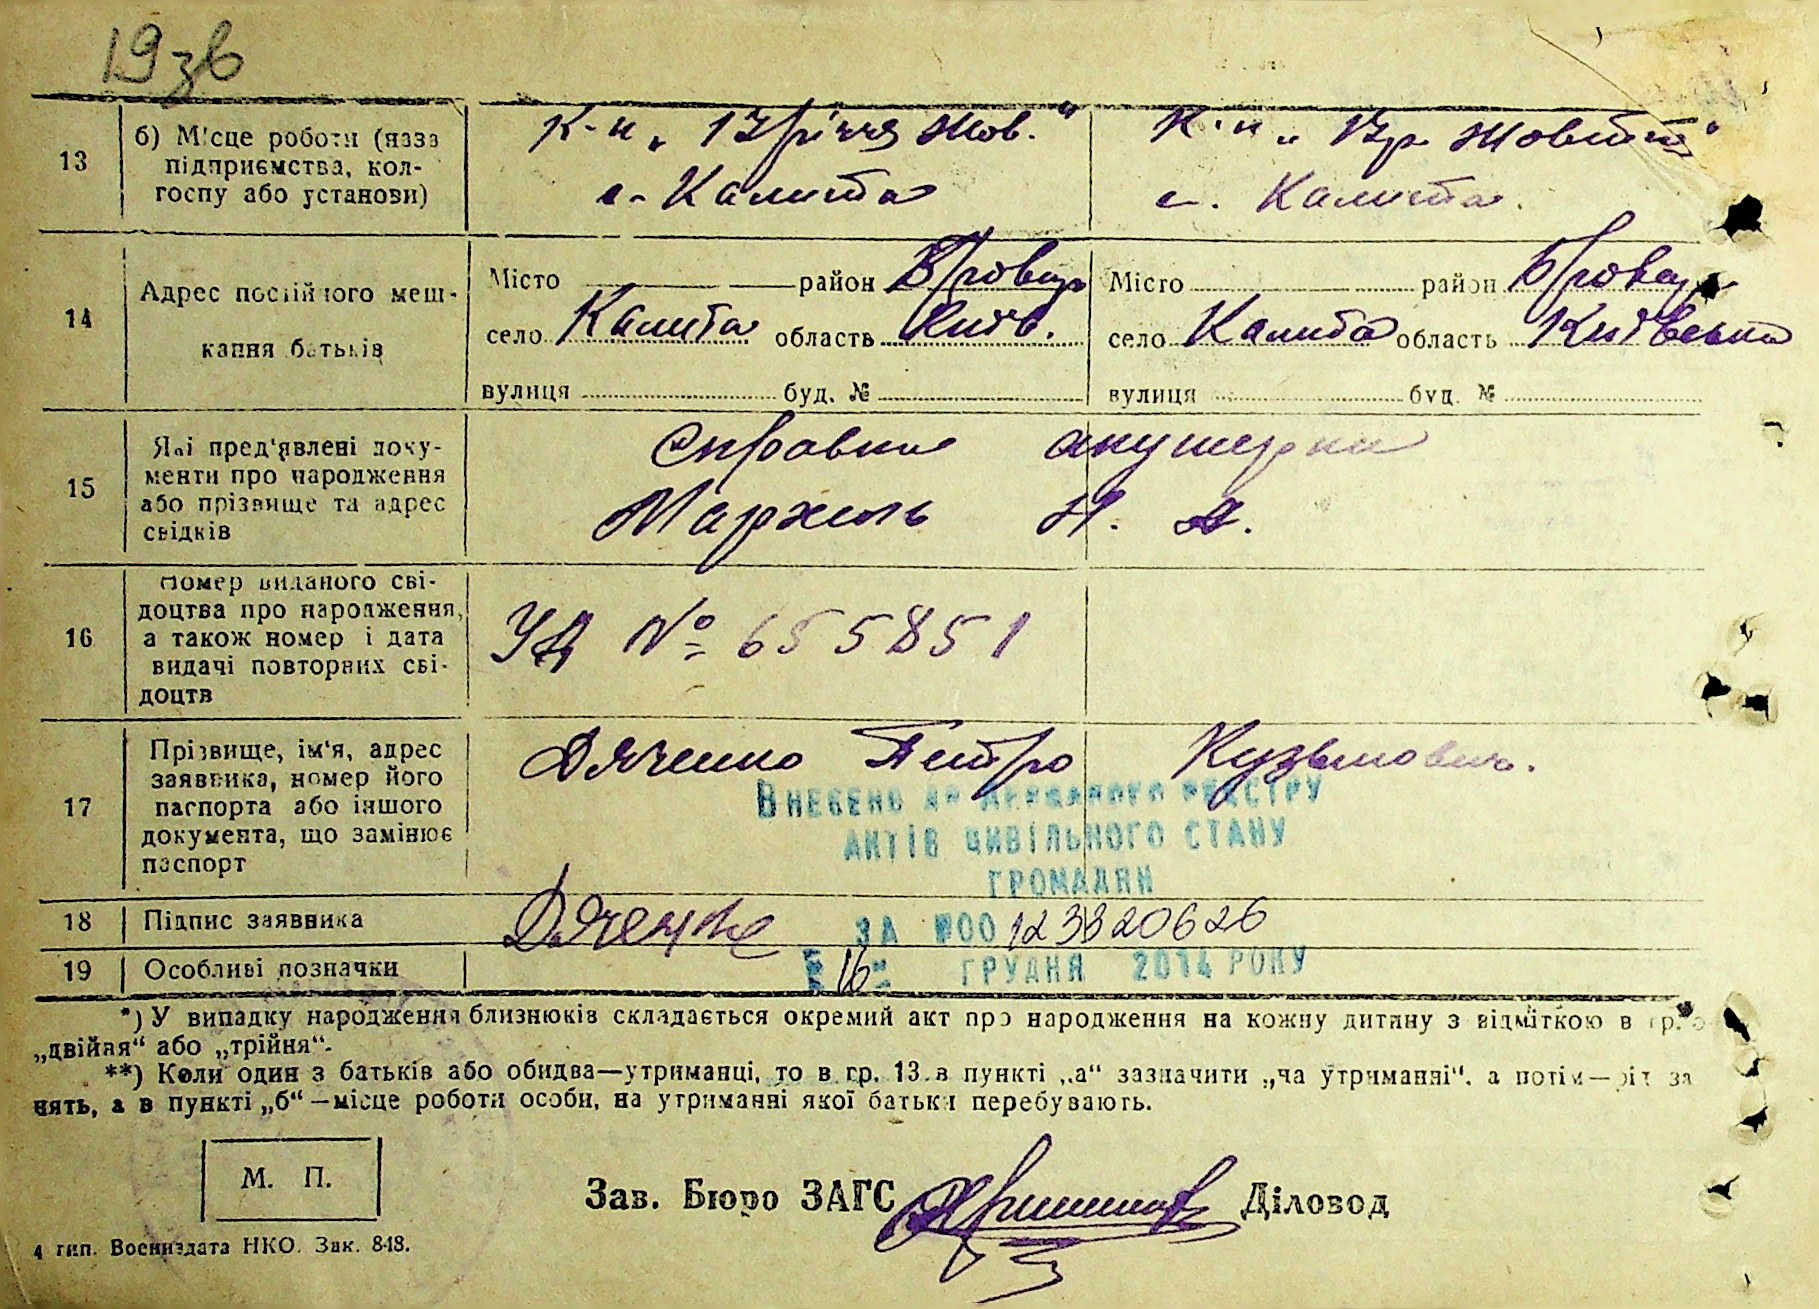 19зв
13 б) Місце роботи (назва підприємства, колгоспу або установи)
К-п „ 12 річчя Жов. "
с. Калита
К-п „ 12 р. Жовтня "
с. Калита.
14 Адрес постійного мешкання батьків
Місто район Бровар
село Калита область Київ.
вулиця буд. №
Місто район Бровар
село Калита область Київська
вулиця буд. №
15 Які пред'явлені документи про народження або прізвище та адрес свідків
Справка акушерки
Н. Д.
16 Номер виданого свідоцтва про народження, а також номер і дата видачі повторних свідоцтв
УД № 655851
17 Прізвище, ім'я, адрес заявника, номер його паспорта або іншого документа, що замінює паспорт
Дяченко Петро Кузьмович.
Внесено до Державного реєстру
актів цивільного стану
громадян
18 Підпис заявника
Дяченко
за №00123820626
19 Особливі позначки
16 грудня 2014 року
*) У випадку народження близнюків складається окремий акт про народження на кожну дитину з відміткою в гр.
„двійня“ або „трійня“.
**) Коли один з батьків або обидва—утриманці, то в гр. 13 в пункті „а“ зазначити „на утриманні“, а потім—
нять, а в пункті „б“—місце роботи особи, на утриманні якої батьки перебувають.
М. П.
Зав. Бюро ЗАГС Діловод
4 тип. Воениздата НКО. Зак. 848.